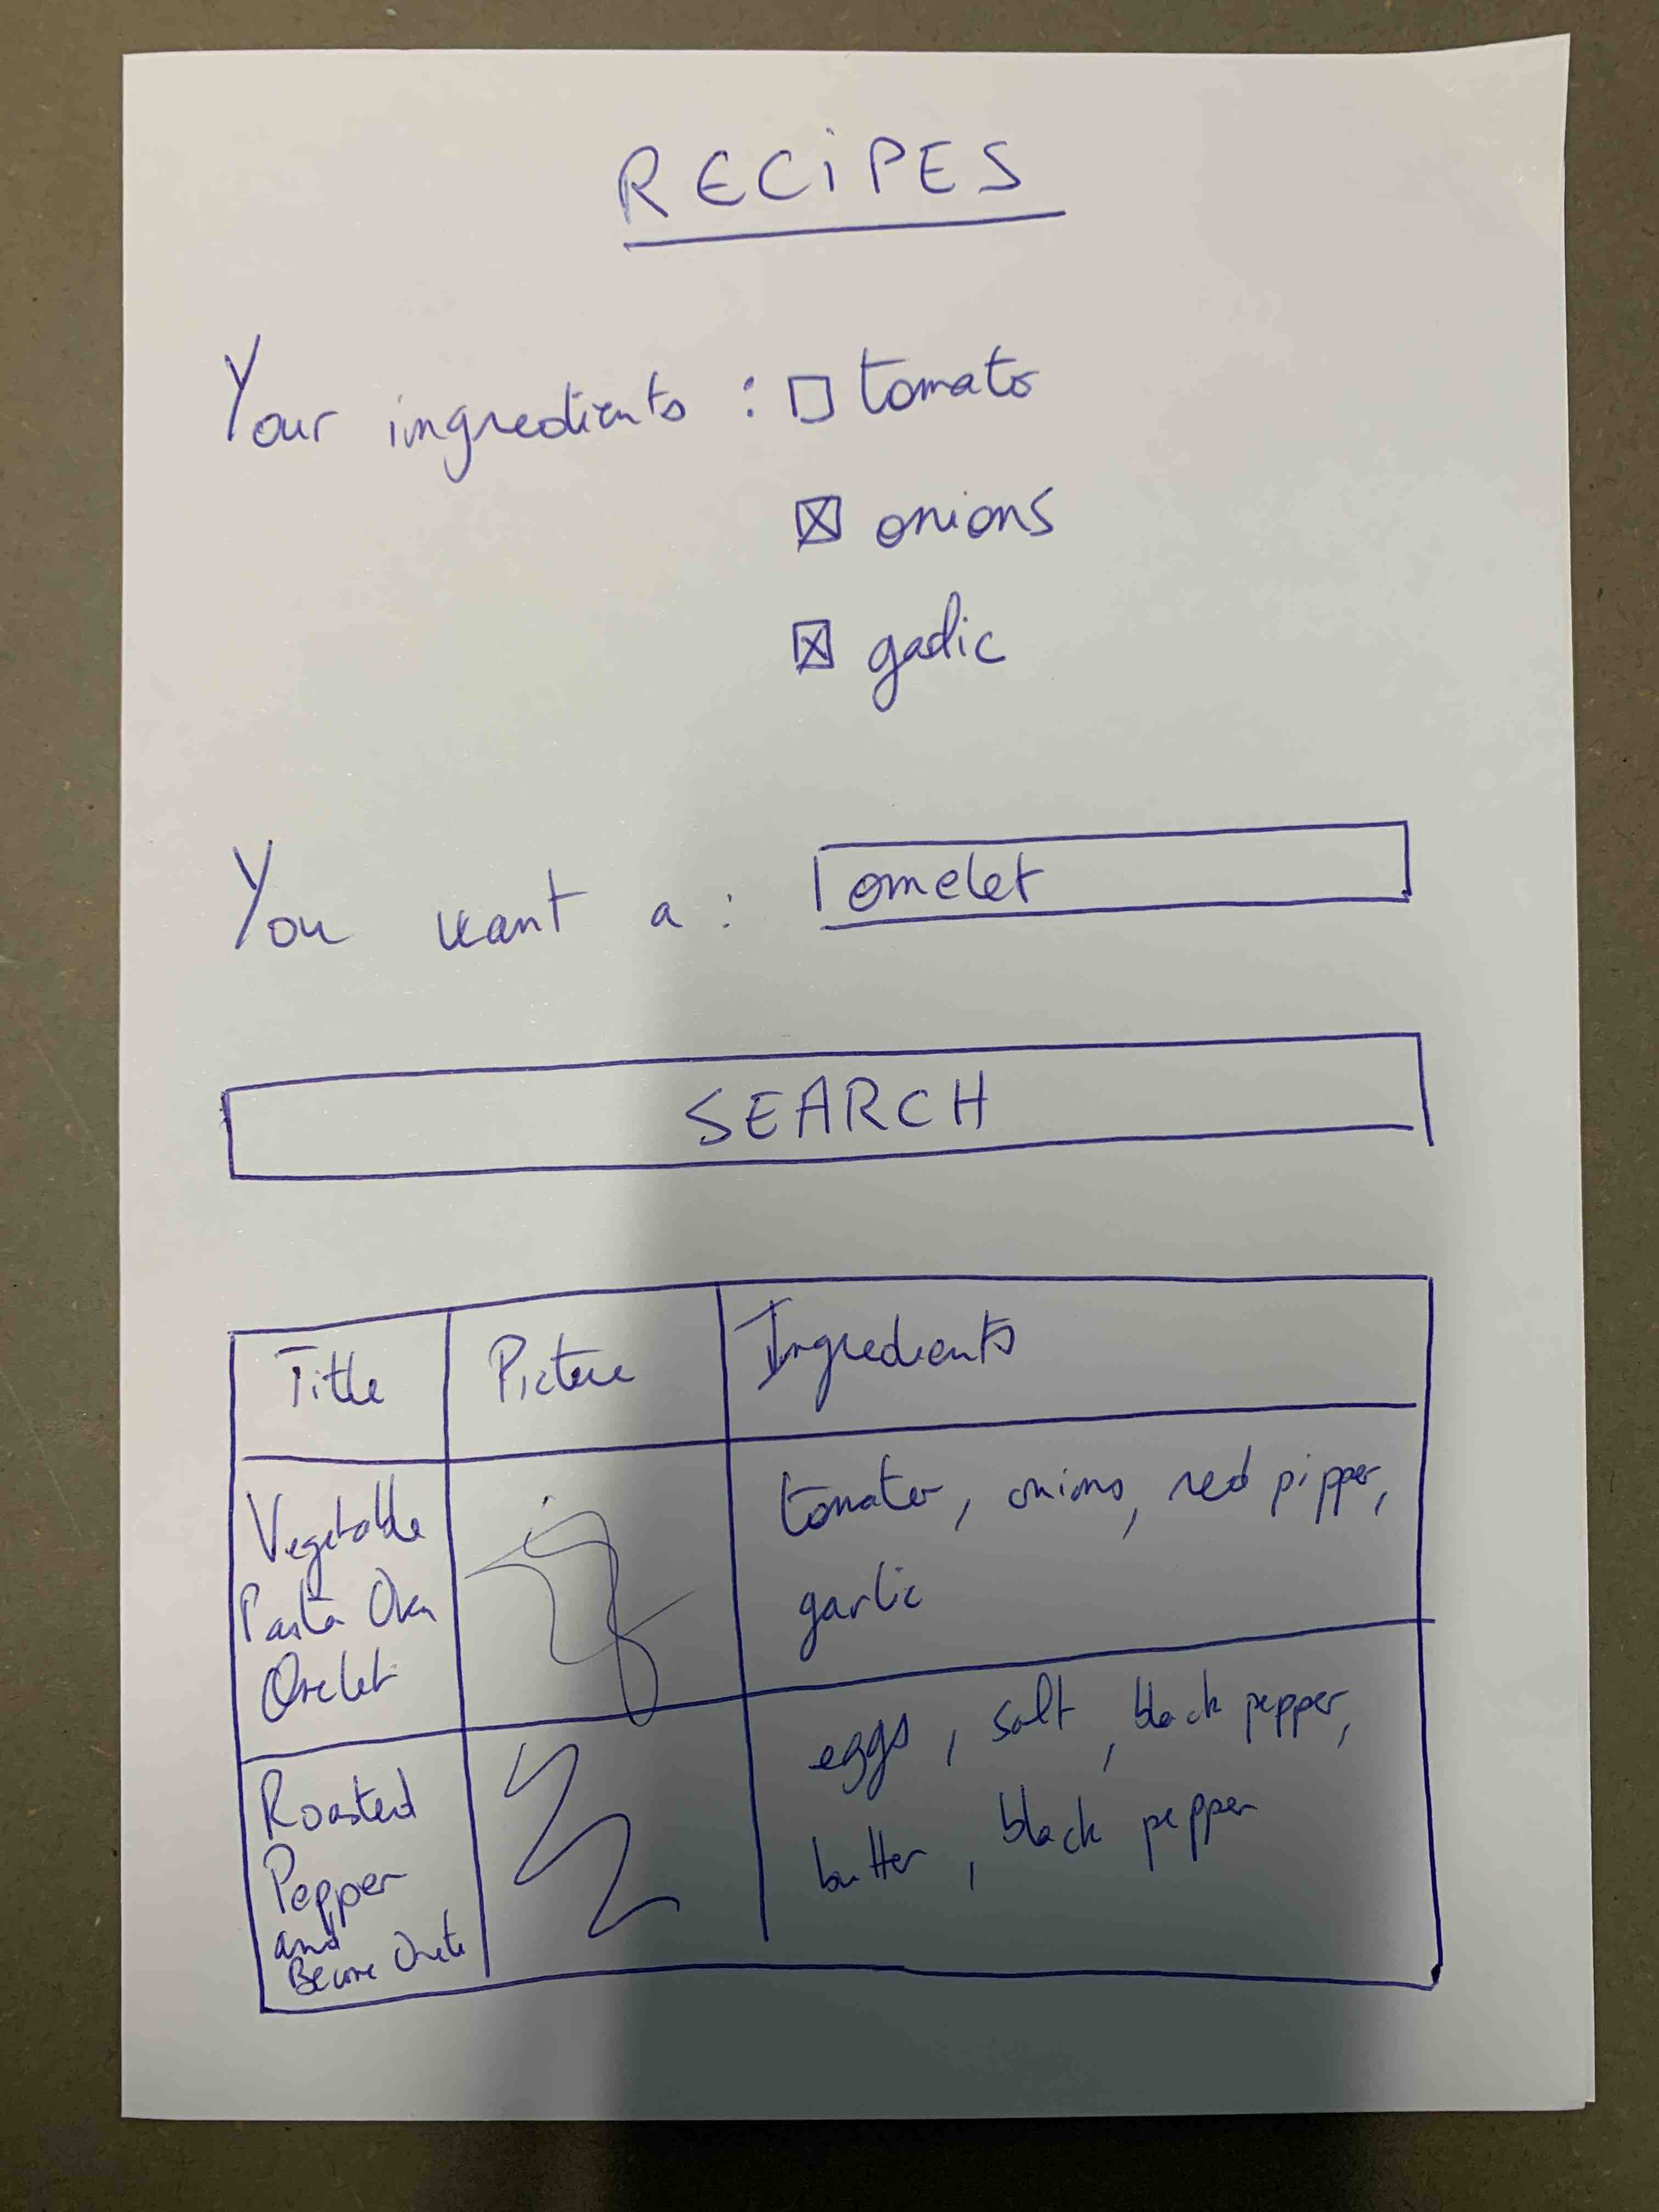 RECIPES
Your ingredients : tomato
onions
garlic
You want a : omelet
SEARCH
Title Picture Ingredients
Vegetable
Pasta Oven
Omelet
tomater, onions, red pipper,
garlic
Roasted
Pepper
and
eggs, salt, black pepper,
butter, black pepper